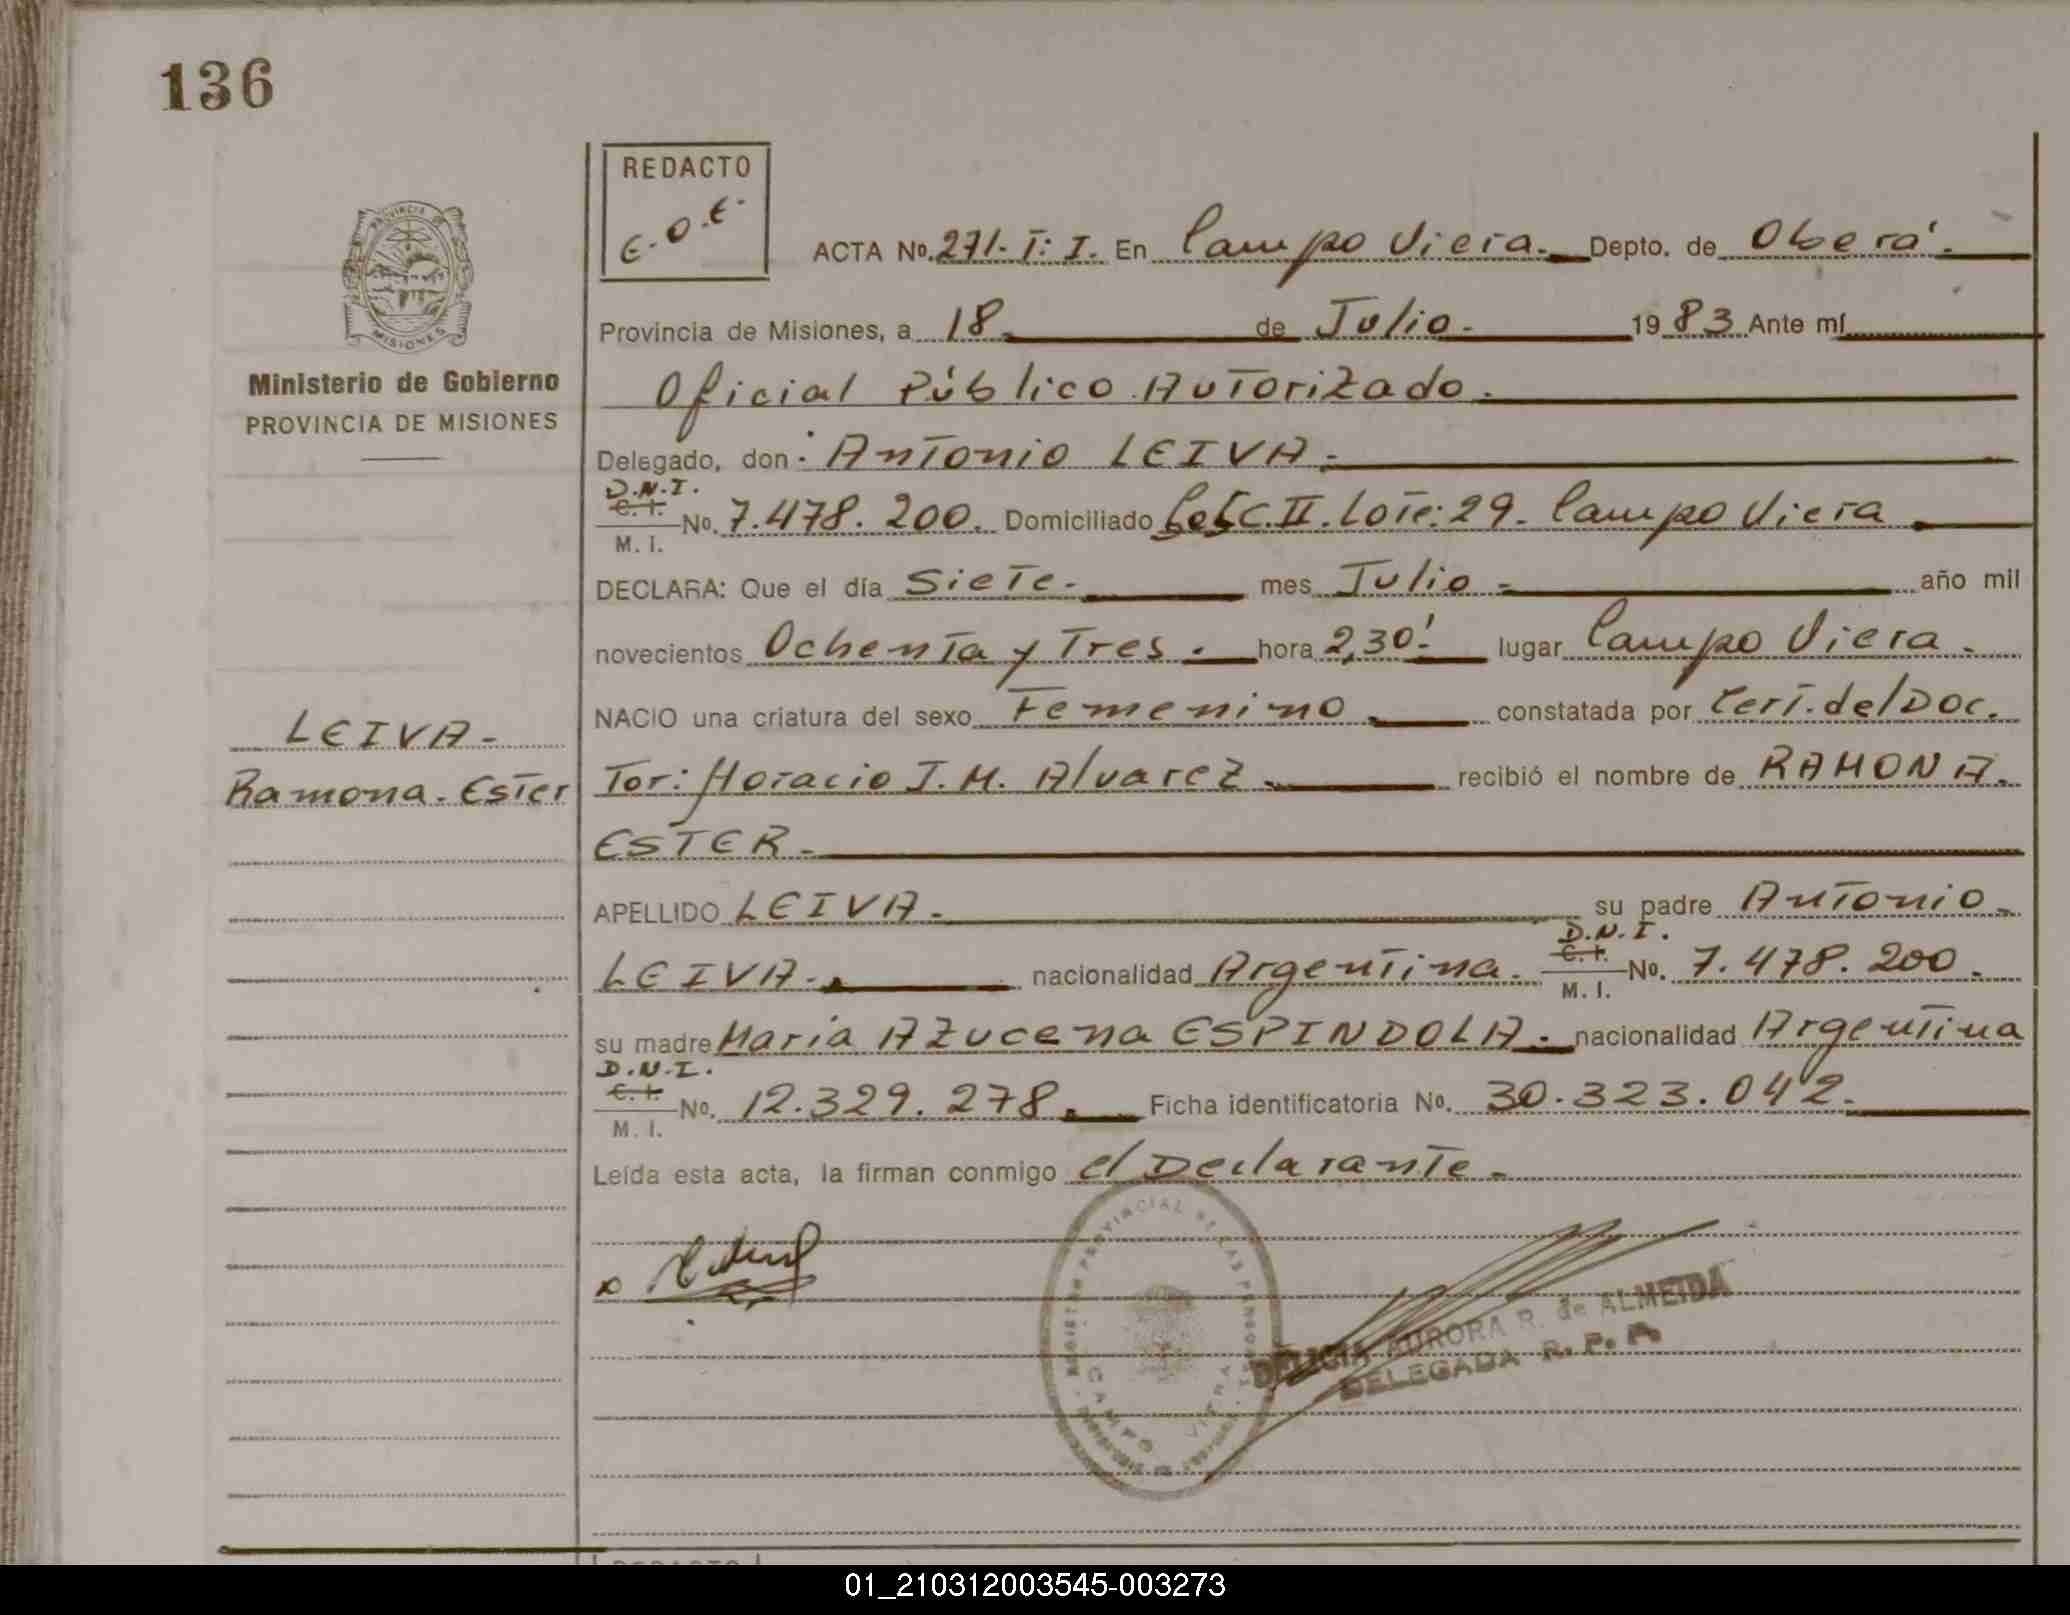 136
REDACTO
E.O.E.
ACTA No. 271. T: I. En Campo Viera. Depto. de Oberá.
Provincia de Misiones, a 18 de Julio. 1983 Ante mí
Ministerio de Gobierno
PROVINCIA DE MISIONES
Oficial Público Autorizado.
Delegado, don: Antonio LEIVA.
D.N.I.
C. I.
M. I.
No. 7.478.200. Domiciliado Secc. II. Lote: 29. Campo Viera
DECLARA: Que el día Siete. mes Julio. año mil
novecientos Ochenta y Tres. hora 2,30! lugar Campo Viera.
NACIO una criatura del sexo Femenino constatada por Cert. del Doc.
LEIVA.
Ramona. Ester
Tor: Horacio J. M. Alvarez. recibió el nombre de RAMONA.
ESTER.
APELLIDO LEIVA. su padre Antonio.
D.N.I.
C. I.
M. I.
LEIVA. nacionalidad Argentina. No. 7.478.200.
su madre Maria Azucena ESPINDOLA. nacionalidad Argentina
D.N.I.
C. I.
M. I.
No. 12.329.278. Ficha identificatoria No. 30.323.042.
Leída esta acta, la firman conmigo el Declarante.
REGISTRO PROVINCIAL DE LAS PERSONAS
CAMPO VIERA
DELICIA AURORA R. de ALMEIDA
DELEGADA R. P. A
REDACTO
01_210312003545-003273